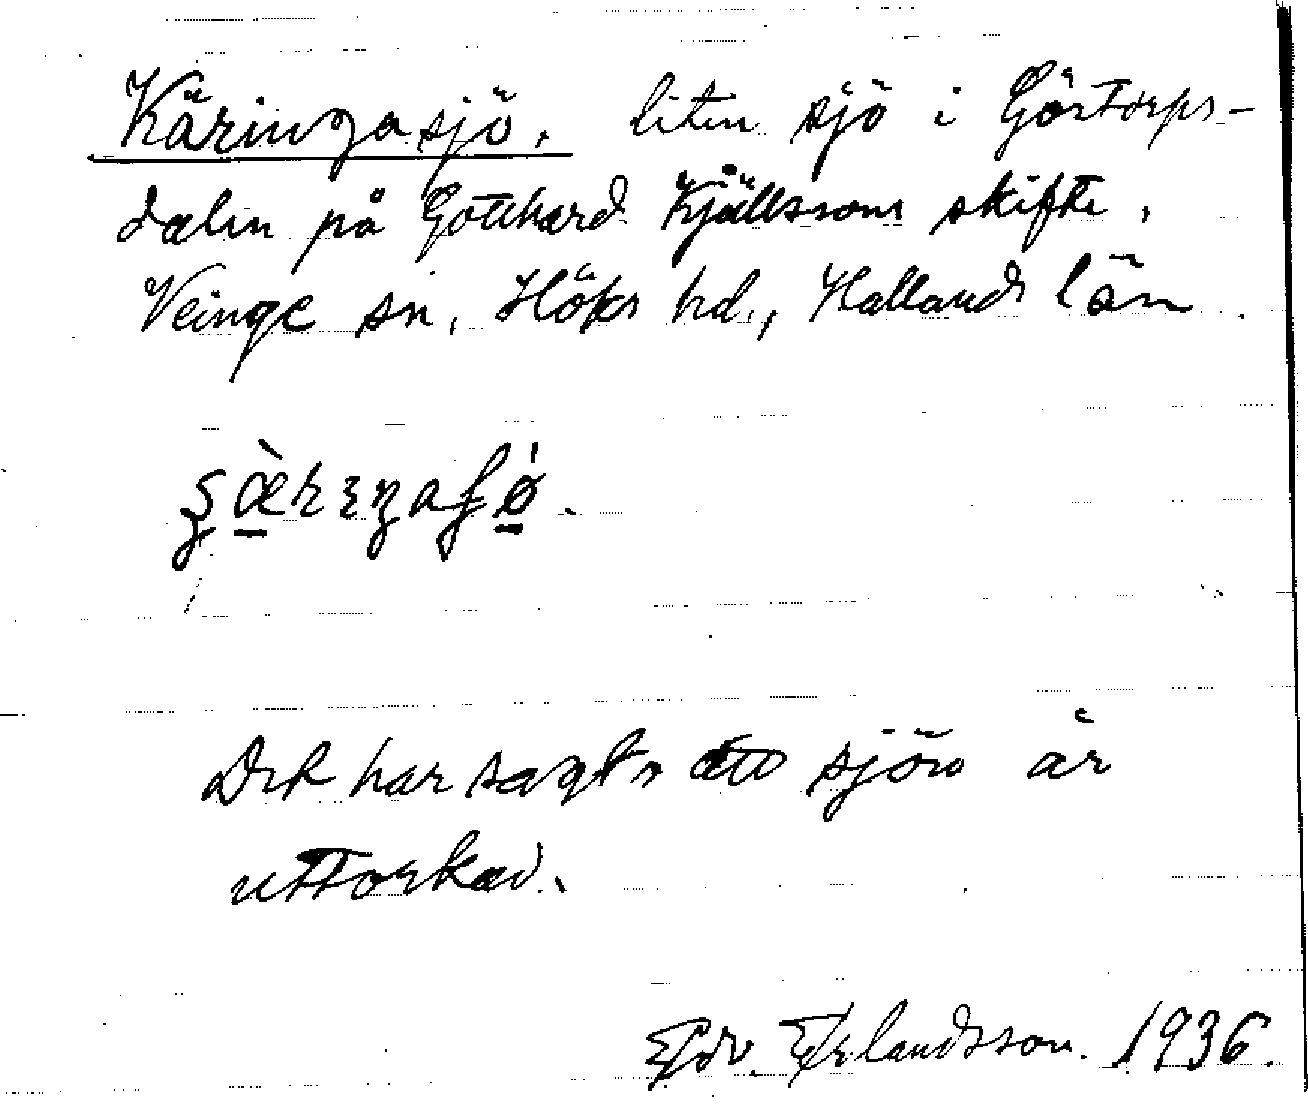 Käringasjö. liten sjö i Görtorps-
dalen på Gotthard Kjällssons skifte,
Veinge sn, Höks hd., Hallands län.
Det har sagts att sjön är
uttorkad.
Edv. Erlandsson. 1936.